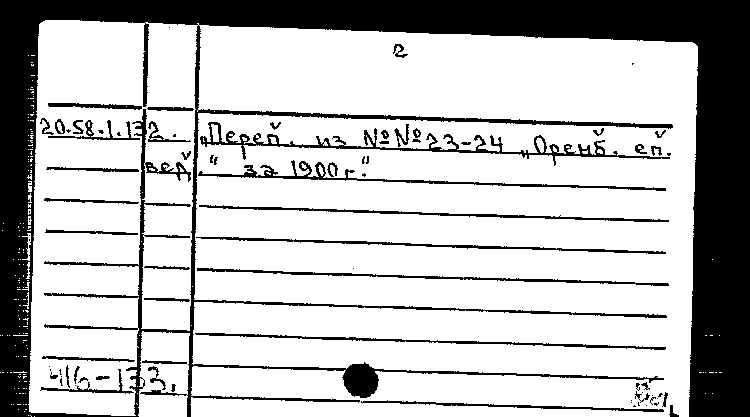 2
20.58.1.132. „Переп̆. из №№23-24 „Оренб̆. еп̆.
вед̆.“ за 1900 г.“
416-133.